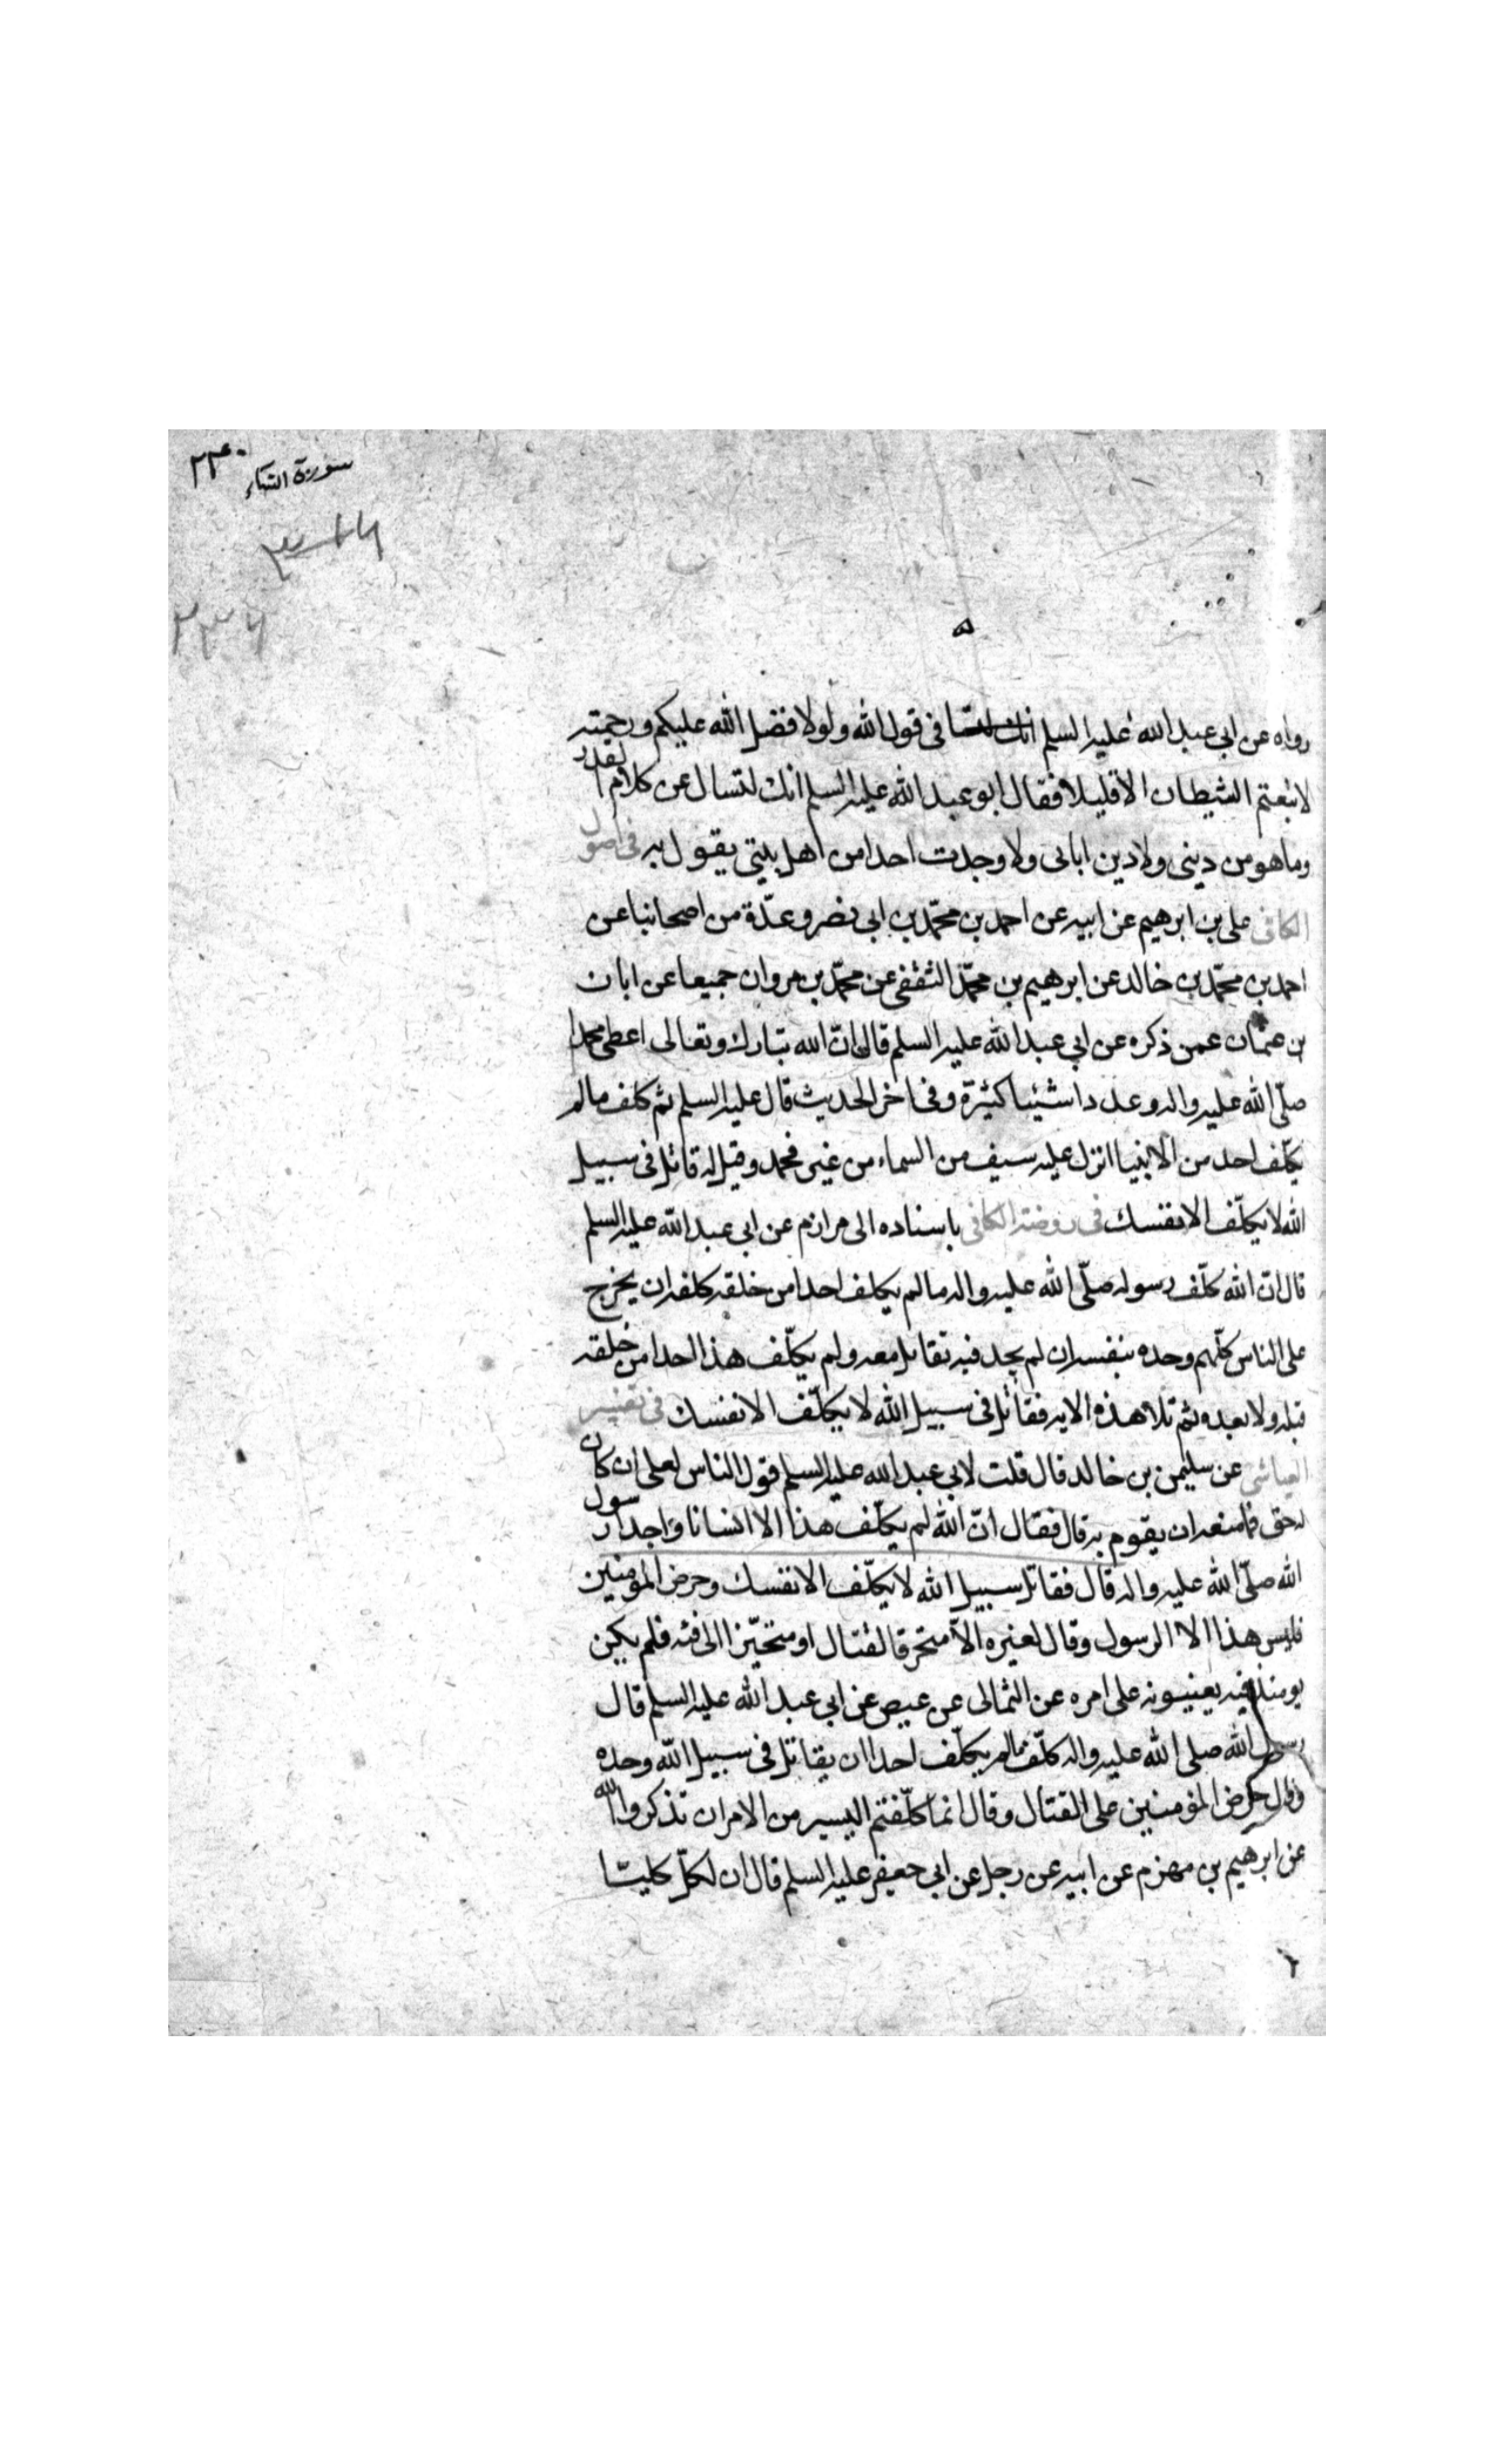 سورة النساء ٢٣٠
رواه عن ابي عبد الله عليه السلم في قول الله ولولا فضل الله عليكم ورحمته
لاتبعتم الشيطان الا قليلا فقال ابو عبد الله عليه السلم انك لتسال عن كلام القدر
وما هو من ديني ولا دين ابائى ولا وجدت احدا من اهل بيتي يقول به في اصول
الكافي على بن ابرهيم عن ابيه عن احمد بن محمّد بن ابى نصر وعدّة من اصحابنا عن
احمد بن محمّد بن خالد عن ابرهيم بن محمّد الثقفى عن محمّد بن مروان جميعا عن ابان
بن عثمان عمن ذكره عن ابي عبد الله عليه السلم قال انّ الله تبارك وتعالى اعطى محمدا
صلّى الله عليه واله وعدد اشيئا كثيرة وفى اخر الحديث قال عليه السلم ثم كلف ما لم
يكلّف احد من الانبيا انزل عليه سيف من السماء من غير غمد وقيل له قاتل فى سبيل
الله لا يكلّف الا نفسك في روضة الكافى باسناده الى مرازم عن ابى عبد الله عليه السلم
قال انّ الله كلّف رسوله صلّى الله عليه واله ما لم يكلف احدا من خلقه كلفه ان يخرج
على الناس كلّهم وحده بنفسه ان لم يجد فيه تقاتل معه ولم يكلّف هذا احدا من خلقه
قبله ولا بعده ثم تلا هذه الايه فقاتل فى سبيل الله لا يكلّف الا نفسك في تفسير
العياشى عن سليمن بن خالد قال قلت لابي عبد الله عليه السلم قول الناس لعلى ان كان
له حق فما منعه ان يقوم به قال فقال انّ الله لم يكلّف هذا الا انسانا واحدا رسول
الله صلّى الله عليه واله قال فقاتل سبيل الله لا يكلّف الا نفسك وحرض المؤمنين
فليس هذا الا الرسول وقال لغيره الاّ متحرفا لقتال او متحيّزا الى فئه فلم يكن
يومئذ فيه يعينونه على امره عن الثمالى عن عيص عن ابي عبد الله عليه السلم قال
رسول الله صلى الله عليه واله كلّف ما لم يكلّف احدا ان يقاتل فى سبيل الله وحده
وقال حرض المؤمنين على القتال وقال انما كلّفتم اليسير من الامر ان تذكروا الله
عن ابرهيم بن مهزم عن ابيه عن رجل عن ابي جعفر عليه السلم قال ان لكلّ كلبتا